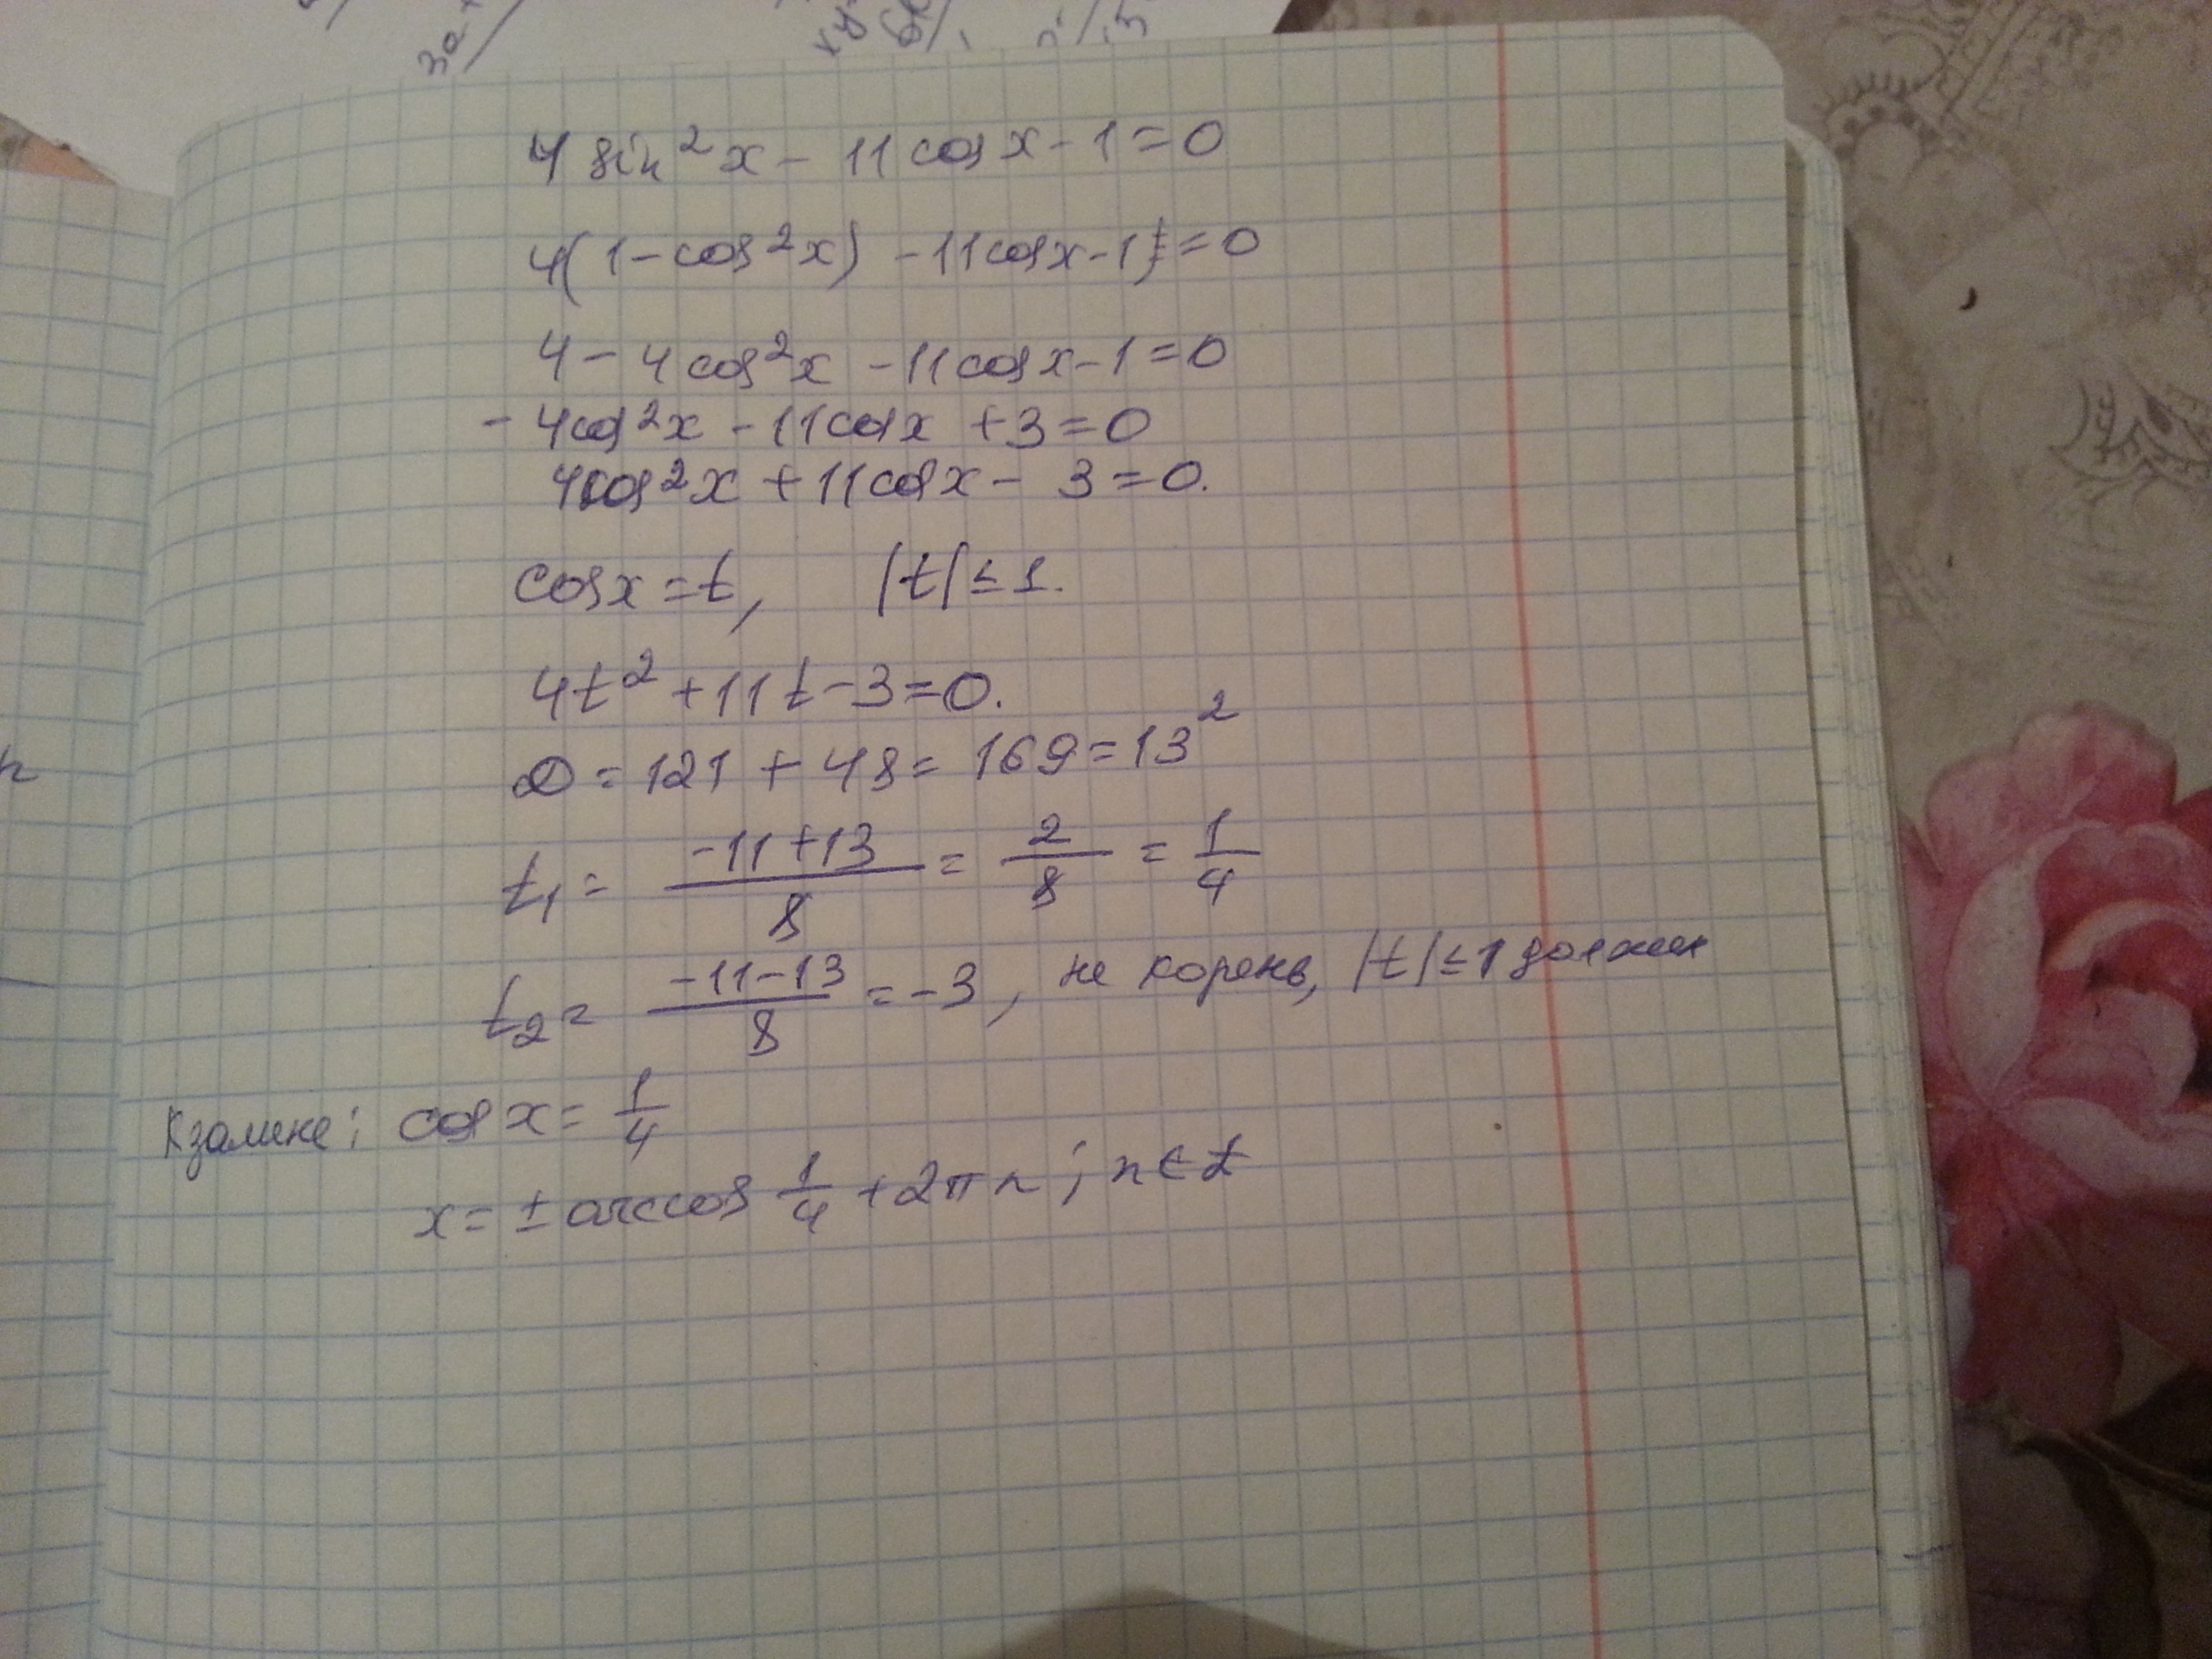 4 sin²x - 11 cos x - 1 = 0
4(1 - cos²x) - 11 cos x - 1 = 0
4 - 4 cos²x - 11 cos x - 1 = 0
- 4cos²x - 11cos x + 3 = 0
4cos²x + 11cos x - 3 = 0.
cos x = t, |t| ≤ 1.
4t² + 11t - 3 = 0.
D = 121 + 48 = 169 = 13²
t₁ = (-11+13)/8 = 2/8 = 1/4
t₂ = (-11-13)/8 = -3, не корень, |t| ≤ 1 должен
К замене: cos x = 1/4
x = ± arccos 1/4 + 2πn; n ∈ Z